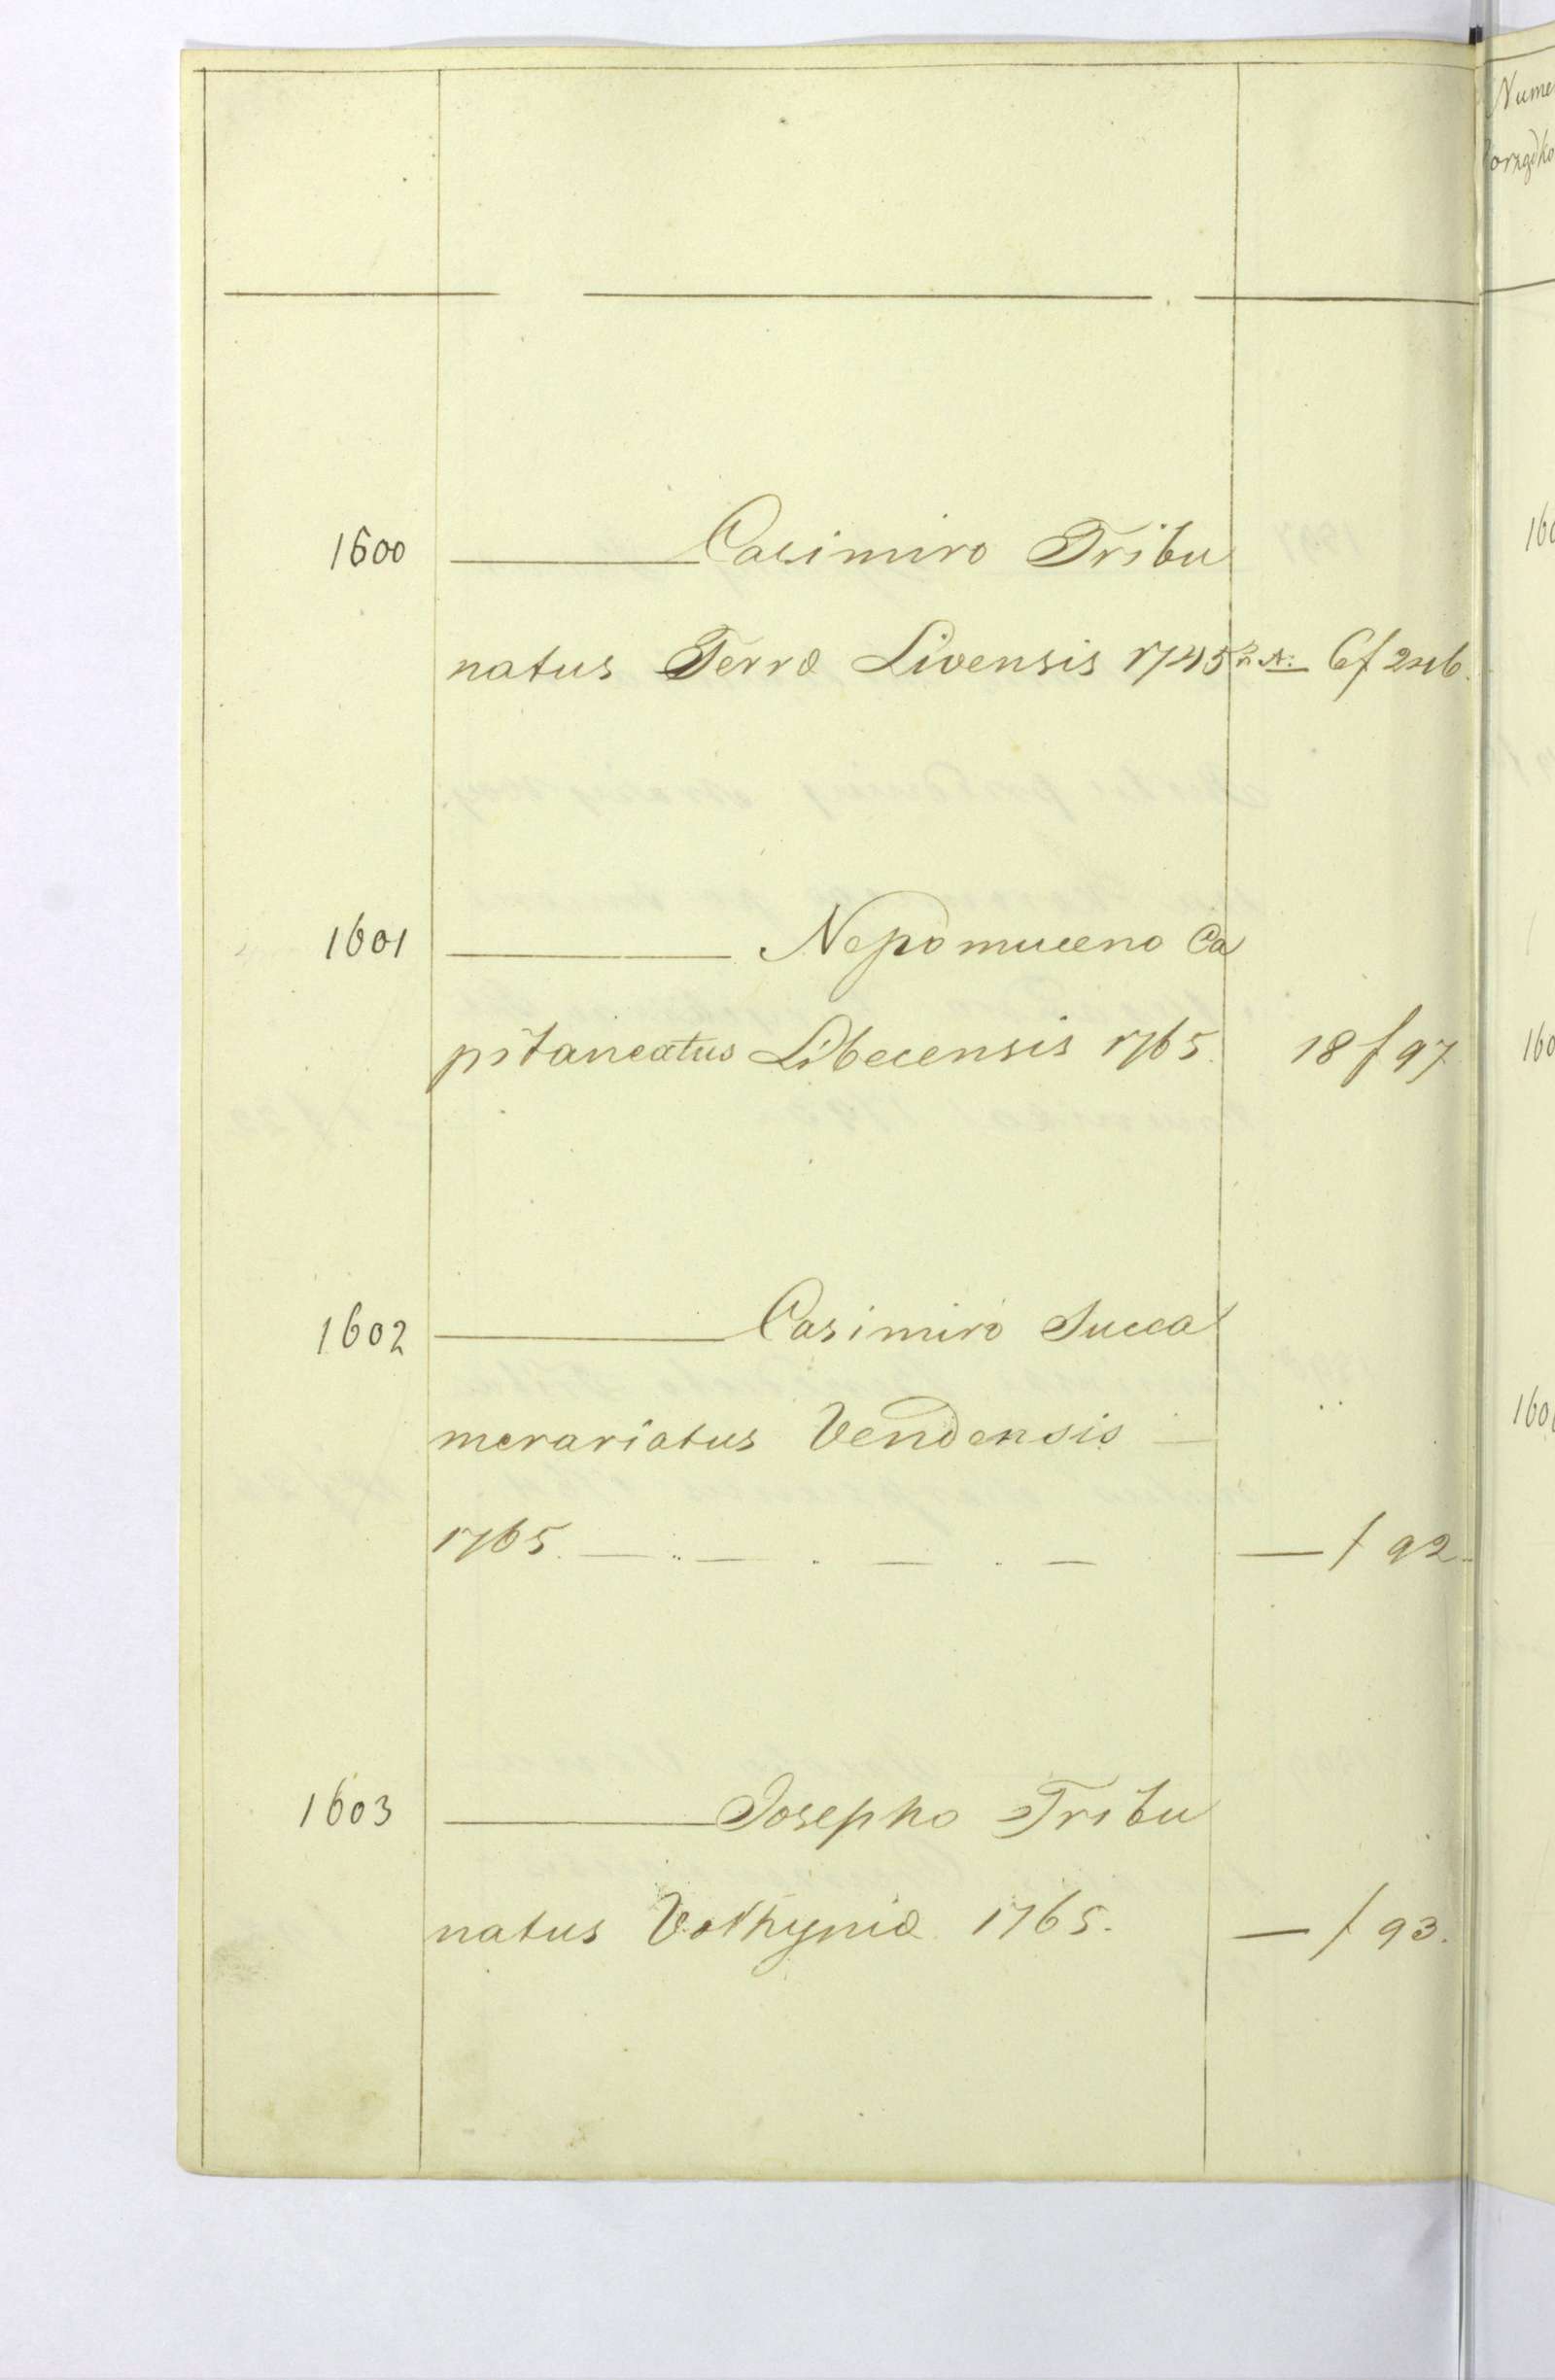 1600 ——— Casimiro Tribu
natus Terræ Livensis 1745 6 f 246.
1601 ——— Nepomuceno Ca
pitaneatus Libecensis 1765. 18 f 97
1602 ——— Casimiro Succa
merariatus Vendensis —
1765. — . — . — . — — f 92.
1603 ——— Josepho Tribu
natus Volhyniæ 1765. — f 93.
Nume